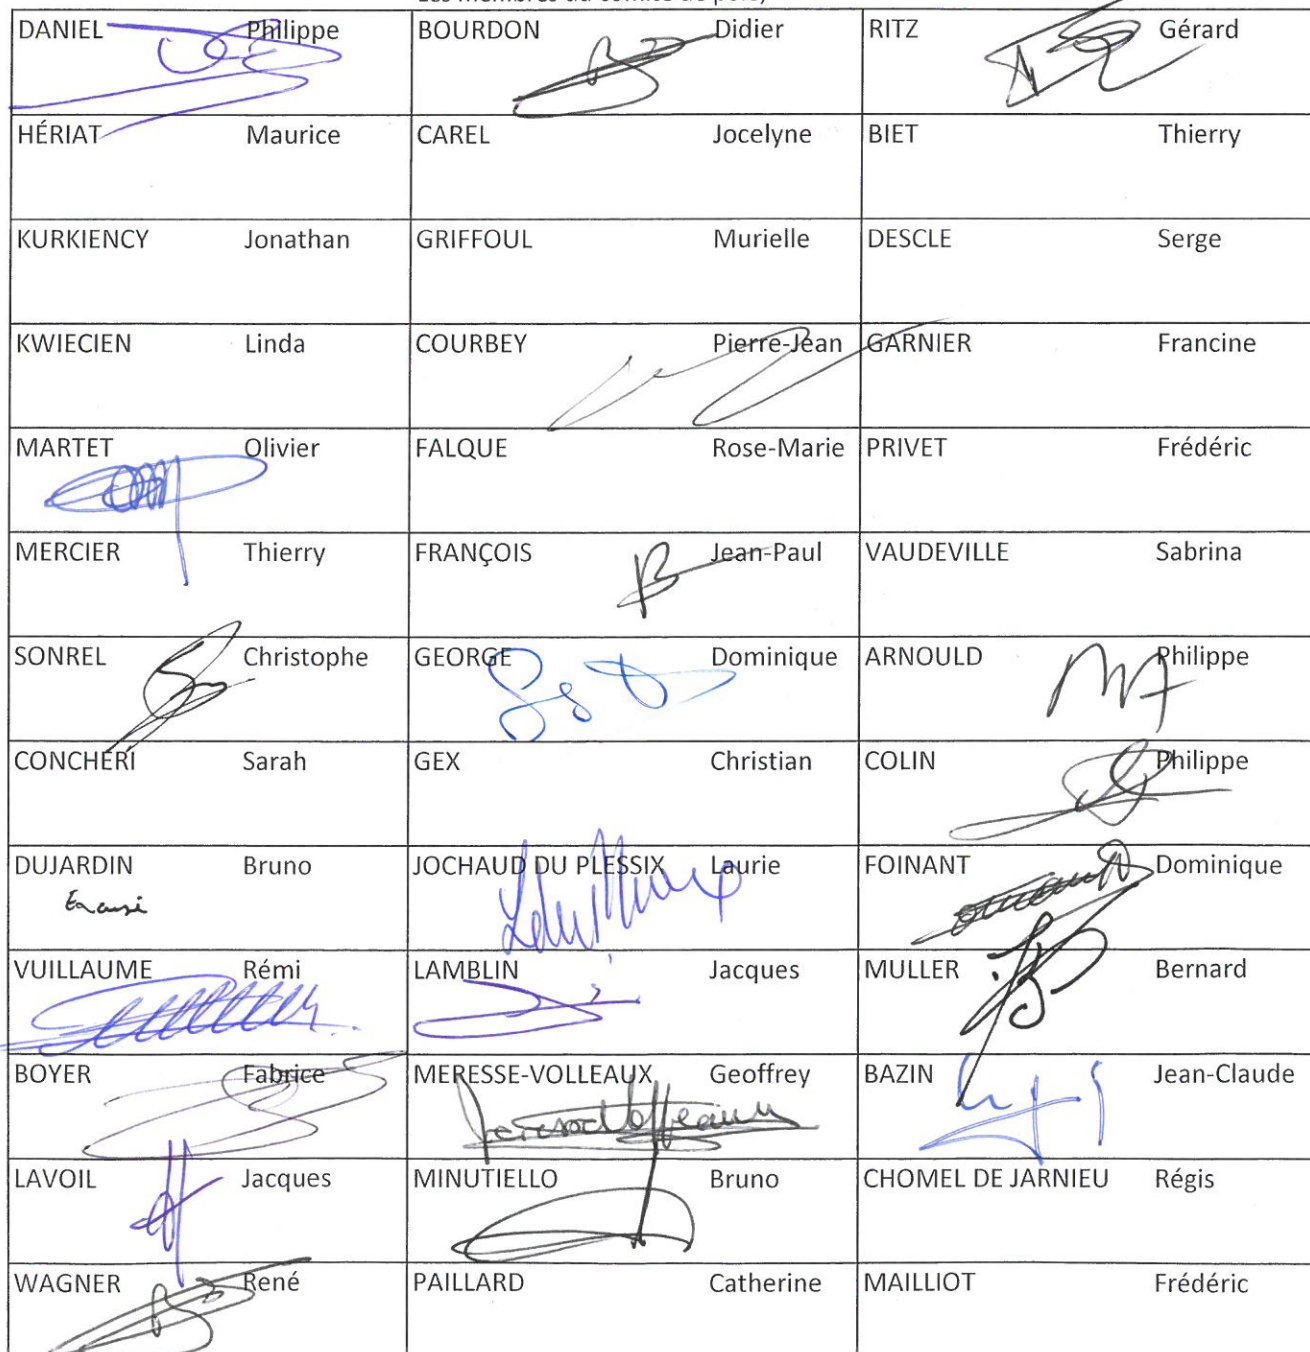 Les membres du comité de pôle,
DANIEL Philippe BOURDON Didier RITZ Gérard
HÉRIAT Maurice CAREL Jocelyne BIET Thierry
KURKIENCY Jonathan GRIFFOUL Murielle DESCLE Serge
KWIECIEN Linda COURBEY Pierre-Jean GARNIER Francine
MARTET Olivier FALQUE Rose-Marie PRIVET Frédéric
MERCIER Thierry FRANÇOIS Jean-Paul VAUDEVILLE Sabrina
SONREL Christophe GEORGE Dominique ARNOULD Philippe
CONCHERI Sarah GEX Christian COLIN Philippe
DUJARDIN Bruno JOCHAUD DU PLESSIX Laurie FOINANT Dominique
Excusé
VUILLAUME Rémi LAMBLIN Jacques MULLER Bernard
BOYER Fabrice MERESSE-VOLLEAUX Geoffrey BAZIN Jean-Claude
LAVOIL Jacques MINUTIELLO Bruno CHOMEL DE JARNIEU Régis
WAGNER René PAILLARD Catherine MAILLIOT Frédéric